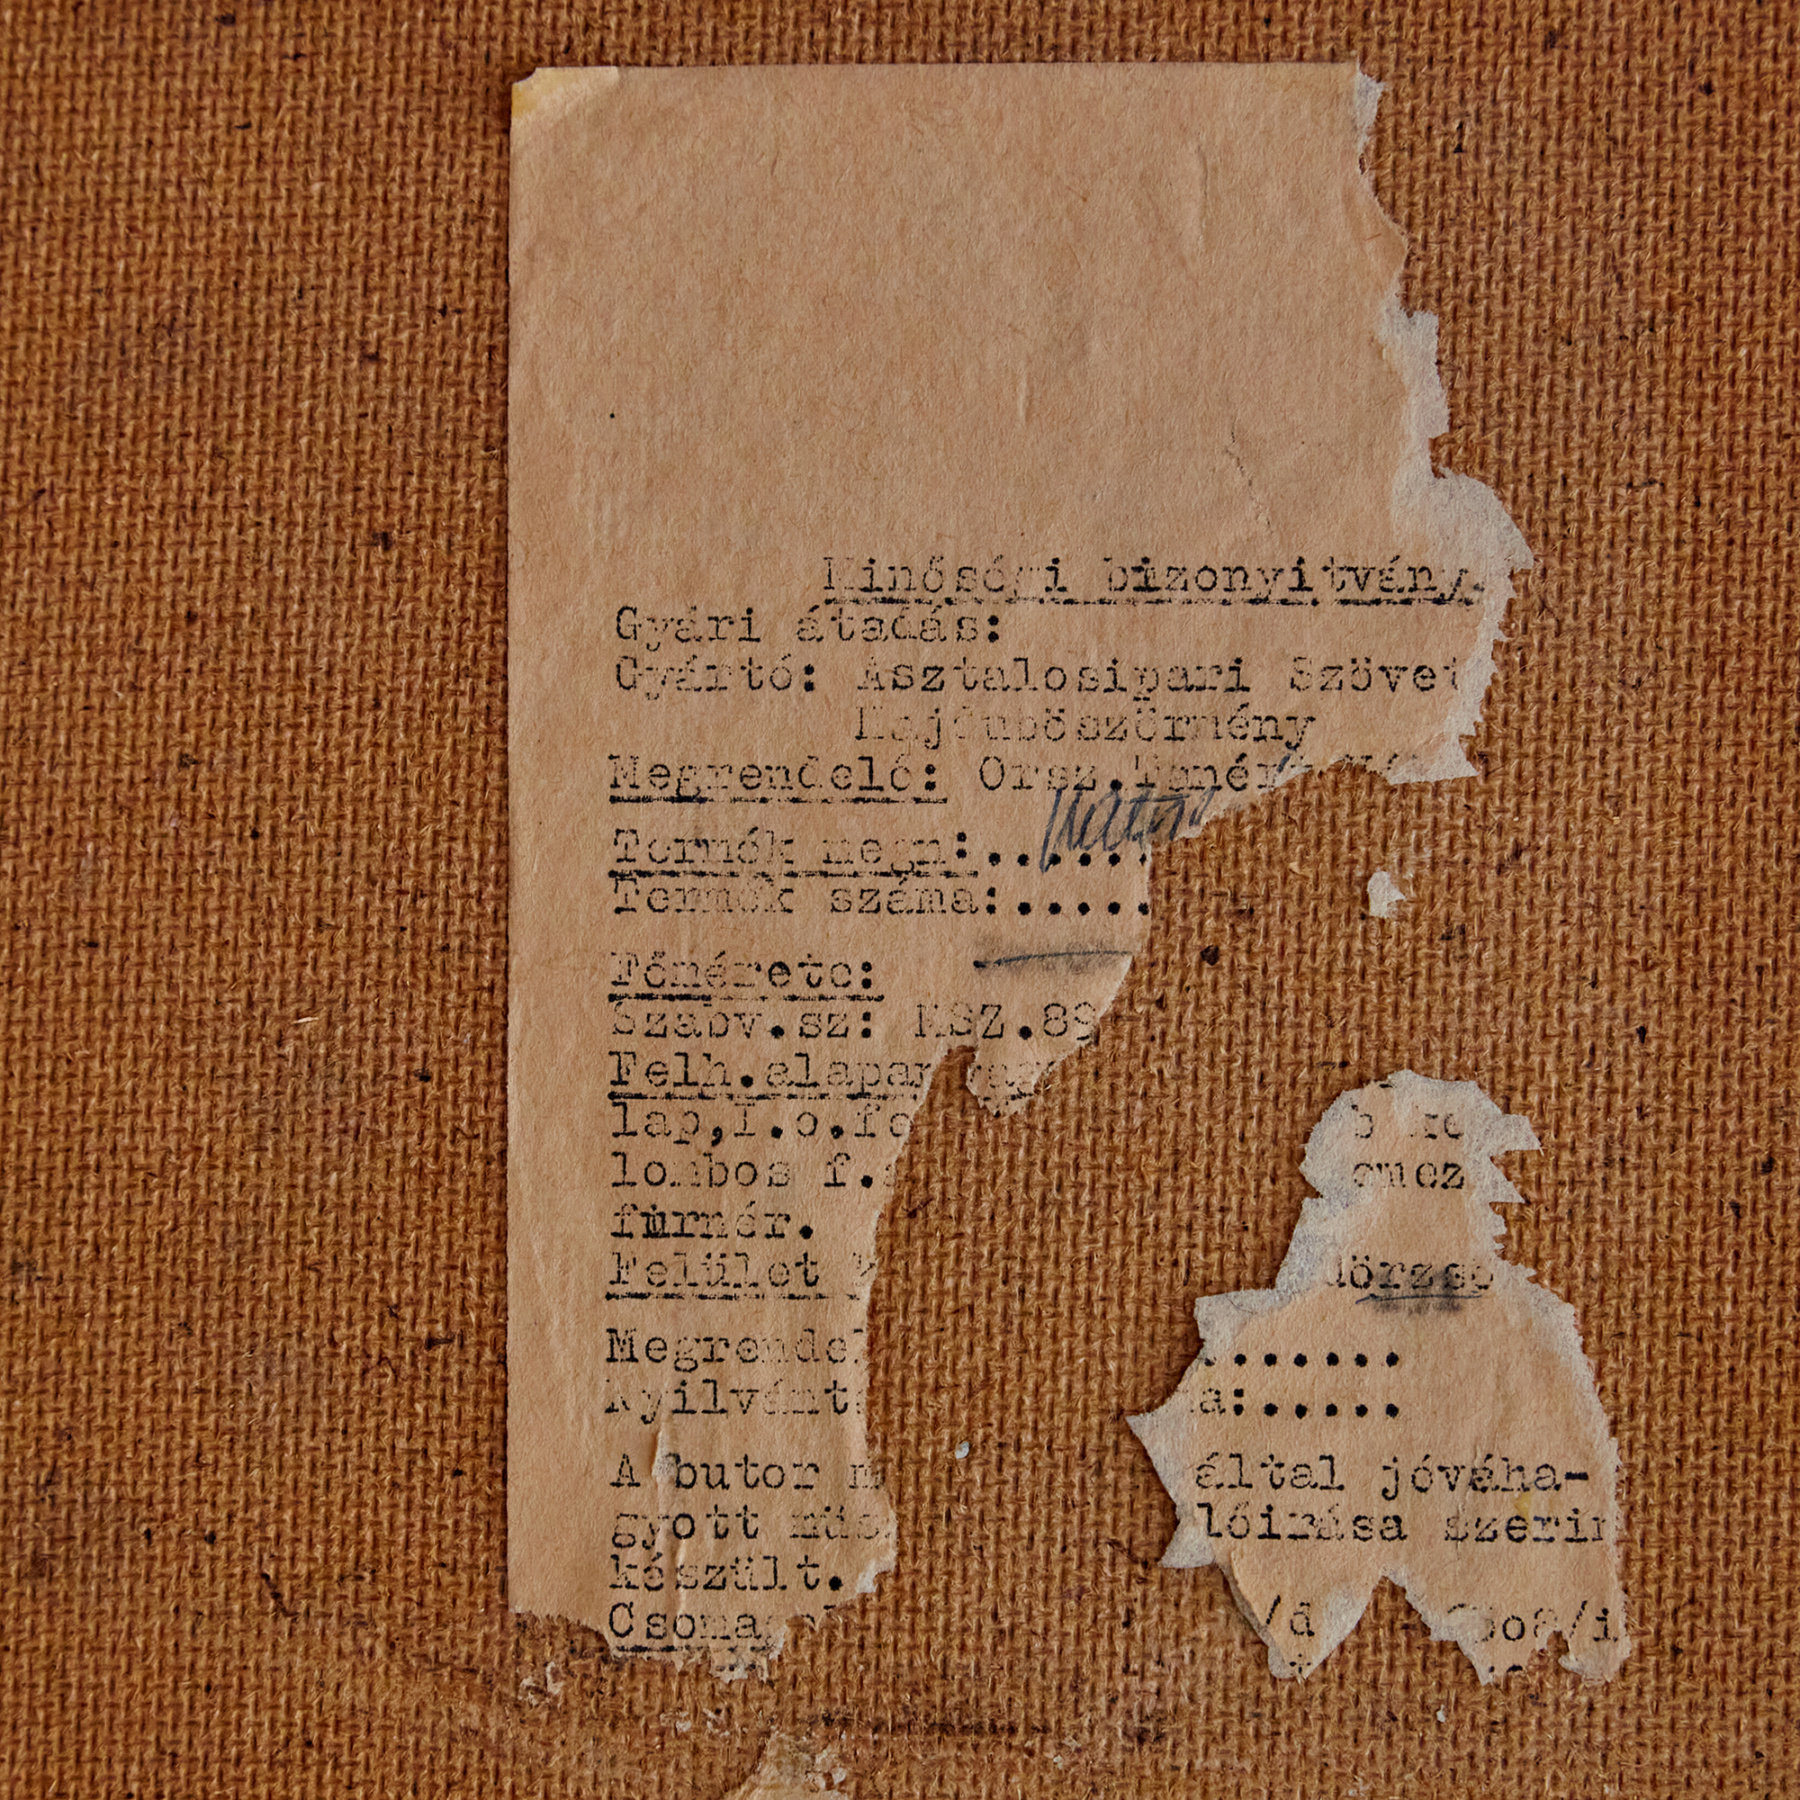 Minőségi bizonyitvány.
Gyári átadás:
Gyártó: Asztalosipari Szövet
Hajduböszörmény
Megrendelő: Orsz.Tanér
Termék megn:......
Termék száma:.....
Főmérete:
Szabv.sz: MSZ.89
Felh.alapanyag
lap,I.o.fe
lombos f.
furnér.
emez
Felület dörzsö
Megrendel .......
Nyilvánta a:.....
A butor m által jóváha-
gyott műs lőirása szerin
készült.
Csomag /d